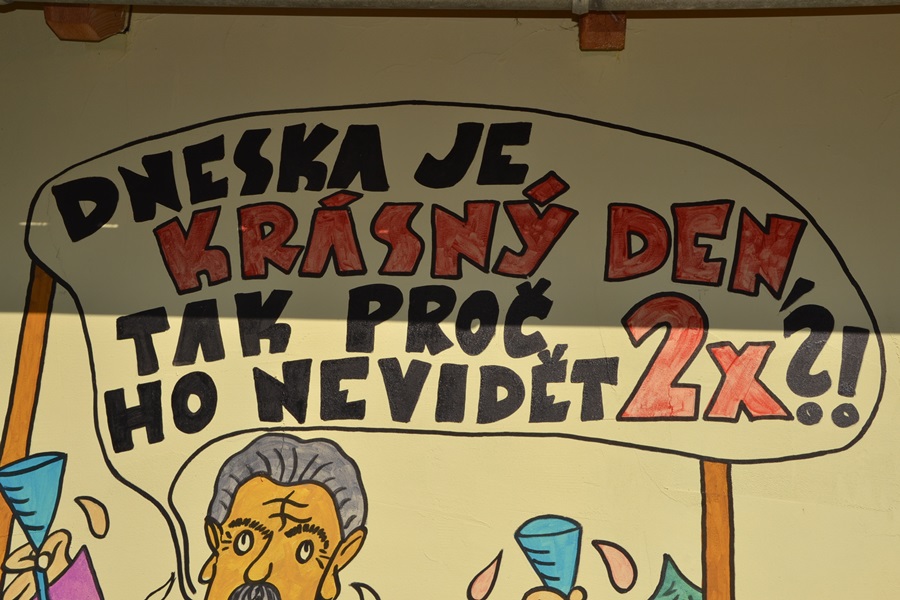 DNESKA JE
KRÁSNÝ DEN,
TAK PROČ
HO NEVIDĚT 2x?!